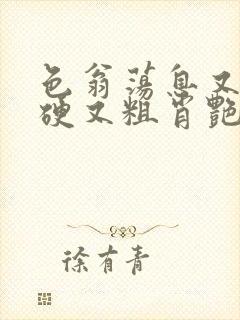 色翁荡息又
硬又粗肖艳
徐有青